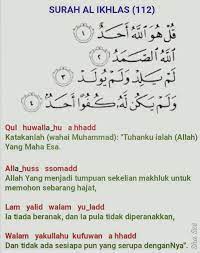 SURAH AL IKHLAS (112)
قُلْ هُوَ ٱللَّهُ أَحَدٌ ١
ٱللَّهُ ٱلصَّمَدُ ٢
لَمْ يَلِدْ وَلَمْ يُولَدْ ٣
وَلَمْ يَكُن لَّهُۥ كُفُوًا أَحَدٌ ٤
Qul huwalla_hu a hhadd
Katakanlah (wahai Muhammad): "Tuhanku ialah (Allah)
Yang Maha Esa.
Alla_huss ssomadd
Allah Yang menjadi tumpuan sekelian makhluk untuk
memohon sebarang hajat,
Lam yalid walam yu_ladd
Ia tiada beranak, dan Ia pula tidak diperanakkan,
Walam yakullahu kufuwan a hhadd
Dan tidak ada sesiapa pun yang serupa denganNya".